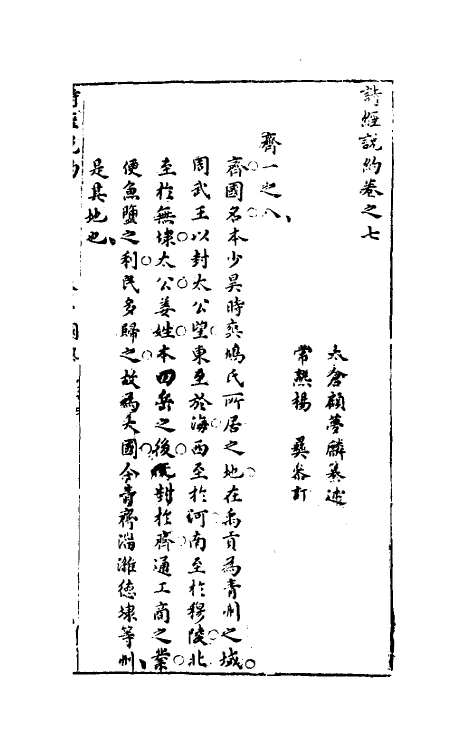 詩經說約卷之七
太倉顧夢麟纂述
常熟楊彝叅訂
齊一之八
齊國名本少昊時爽鳩氏所居之地在禹貢為青州之域
周武王以封太公望東至於海西至於河南至於穆陵北
至於無棣太公姜姓本四岳之後既封於齊通工商之業
便魚鹽之利民多歸之故為大國今青齊淄濰德棣等州
是其地也
詩經說約